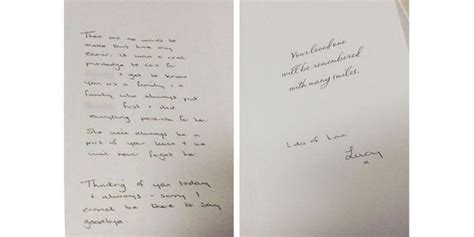 There are no words to
make this time any
easier. It was a real
priviledge to care for
+ get to know
you as a family - a
family who always put
first + did
everything possible for her.
She will always be a
part of your lives + we
will never forget her.
Thinking of you today
+ always - sorry I
cannot be there to say
goodbye.
Your loved one
will be remembered
with many smiles.
Lots of love
Lucy
x